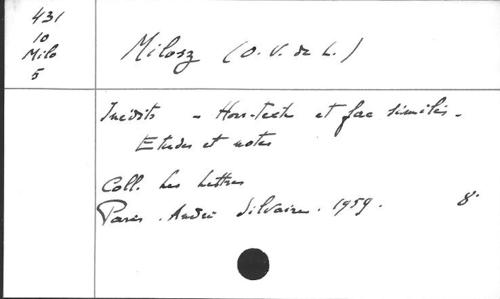 431
10
Milo
5
Milosz (O. V. de L.)
Inédits - Hors-texte et fac similés -
Etudes et notes
Coll. Les Lettres
Paris. André Silvaire. 1959. 8°